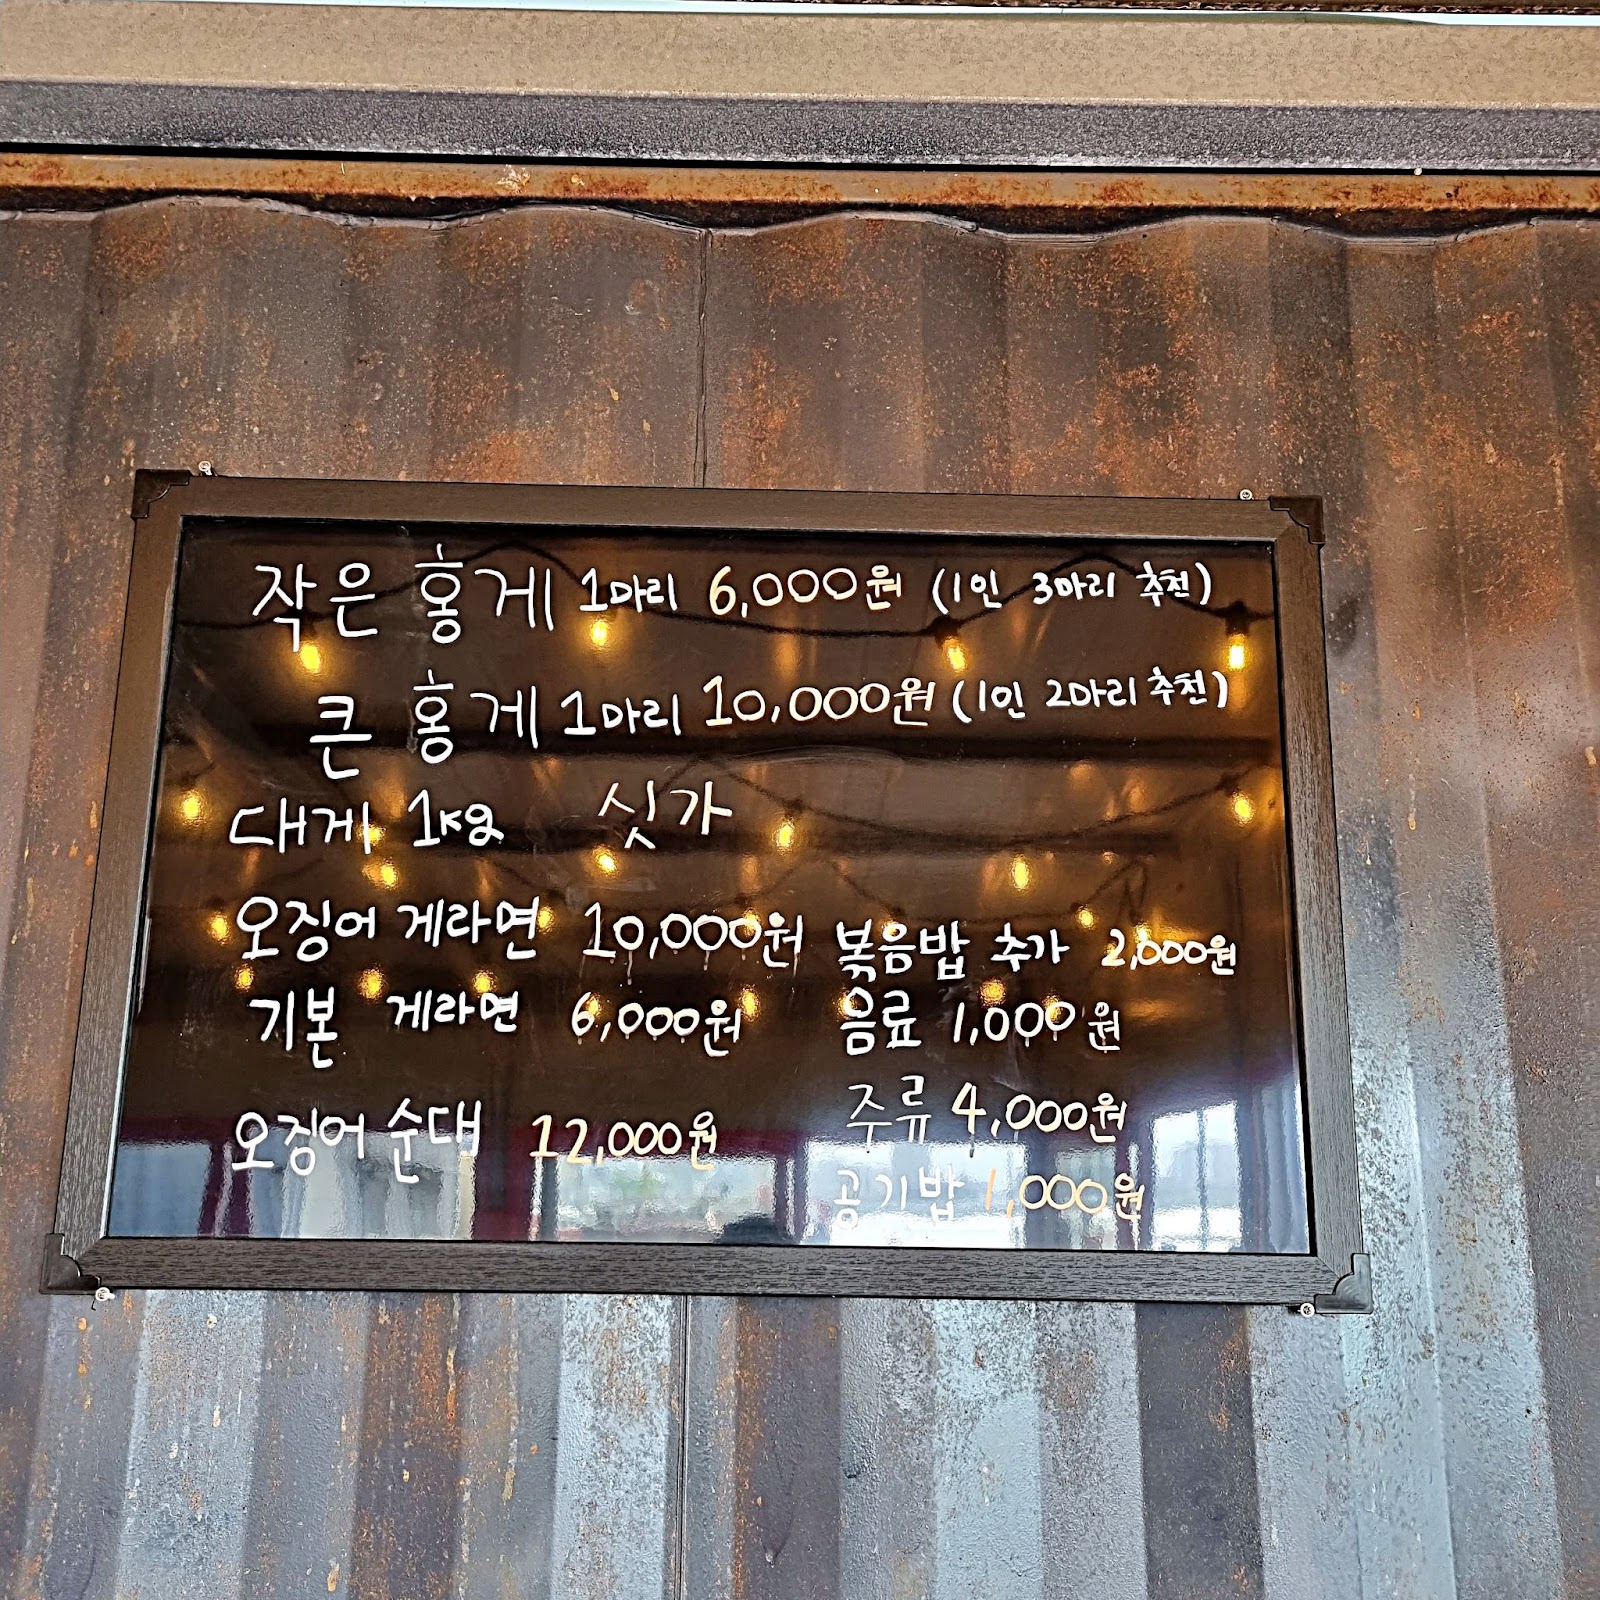 작은 홍게 1마리 6,000원 (1인 3마리 추천)
큰 홍게 1마리 10,000원 (1인 2마리 추천)
대게 1kg 싯가
오징어 게라면 10,000원
기본 게라면 6,000원
오징어 순대 12,000원
볶음밥 추가 2,000원
음료 1,000원
주류 4,000원
공기밥 1,000원